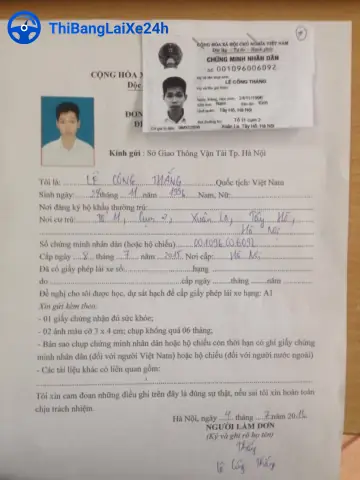 ThiBangLaiXe24h
CỘNG HÒA XÃ HỘI CHỦ NGHĨA VIỆT NAM
Độc lập - Tự do - Hạnh phúc
CHỨNG MINH NHÂN DÂN
SỐ 001096006092
LÊ CÔNG THẮNG
Tổ 11 cụm 2
Xuân La, Tây Hồ, Hà Nội
CỘNG HÒA X
Độc
ĐƠN
Kính gửi : Sở Giao Thông Vận Tải Tp. Hà Nội
Tôi là: LÊ CÔNG THẮNG Quốc tịch: Việt Nam
Sinh ngày: 29 tháng 11 năm 1996 Nam, Nữ:
Nơi đăng ký hộ khẩu thường trú:
Nơi cư trú: Tổ 11, Cụm 2, Xuân La, Tây Hồ,
Hà Nội
Số chứng minh nhân dân (hoặc hộ chiếu) 001096006092
Cấp ngày 8 tháng 7 năm 2015 Nơi cấp: Hà Nội
Đã có giấy phép lái xe số hạng
do cấp ngày tháng năm
Đề nghị cho tôi được học, dự sát hạch để cấp giấy phép lái xe hạng: A1
Xin gửi kèm gồm:
- 01 giấy chứng nhận đủ sức khỏe;
- 02 ảnh màu cỡ 3 x 4 cm; chụp không quá 06 tháng;
- Bản sao chụp chứng minh nhân dân hoặc hộ chiếu còn thời hạn có ghi giấy chứng
minh nhân dân (đối với người Việt Nam) hoặc hộ chiếu (đối với người nước ngoài)
- Các tài liệu khác có liên quan gồm:
Tôi xin cam đoan những điều ghi trên đây là đúng sự thật, nếu sai tôi xin hoàn toàn
chịu trách nhiệm.
Hà Nội, ngày 9 tháng 7 năm 2016
NGƯỜI LÀM ĐƠN
(Ký và ghi rõ họ tên)
Thắng
Lê Công Thắng